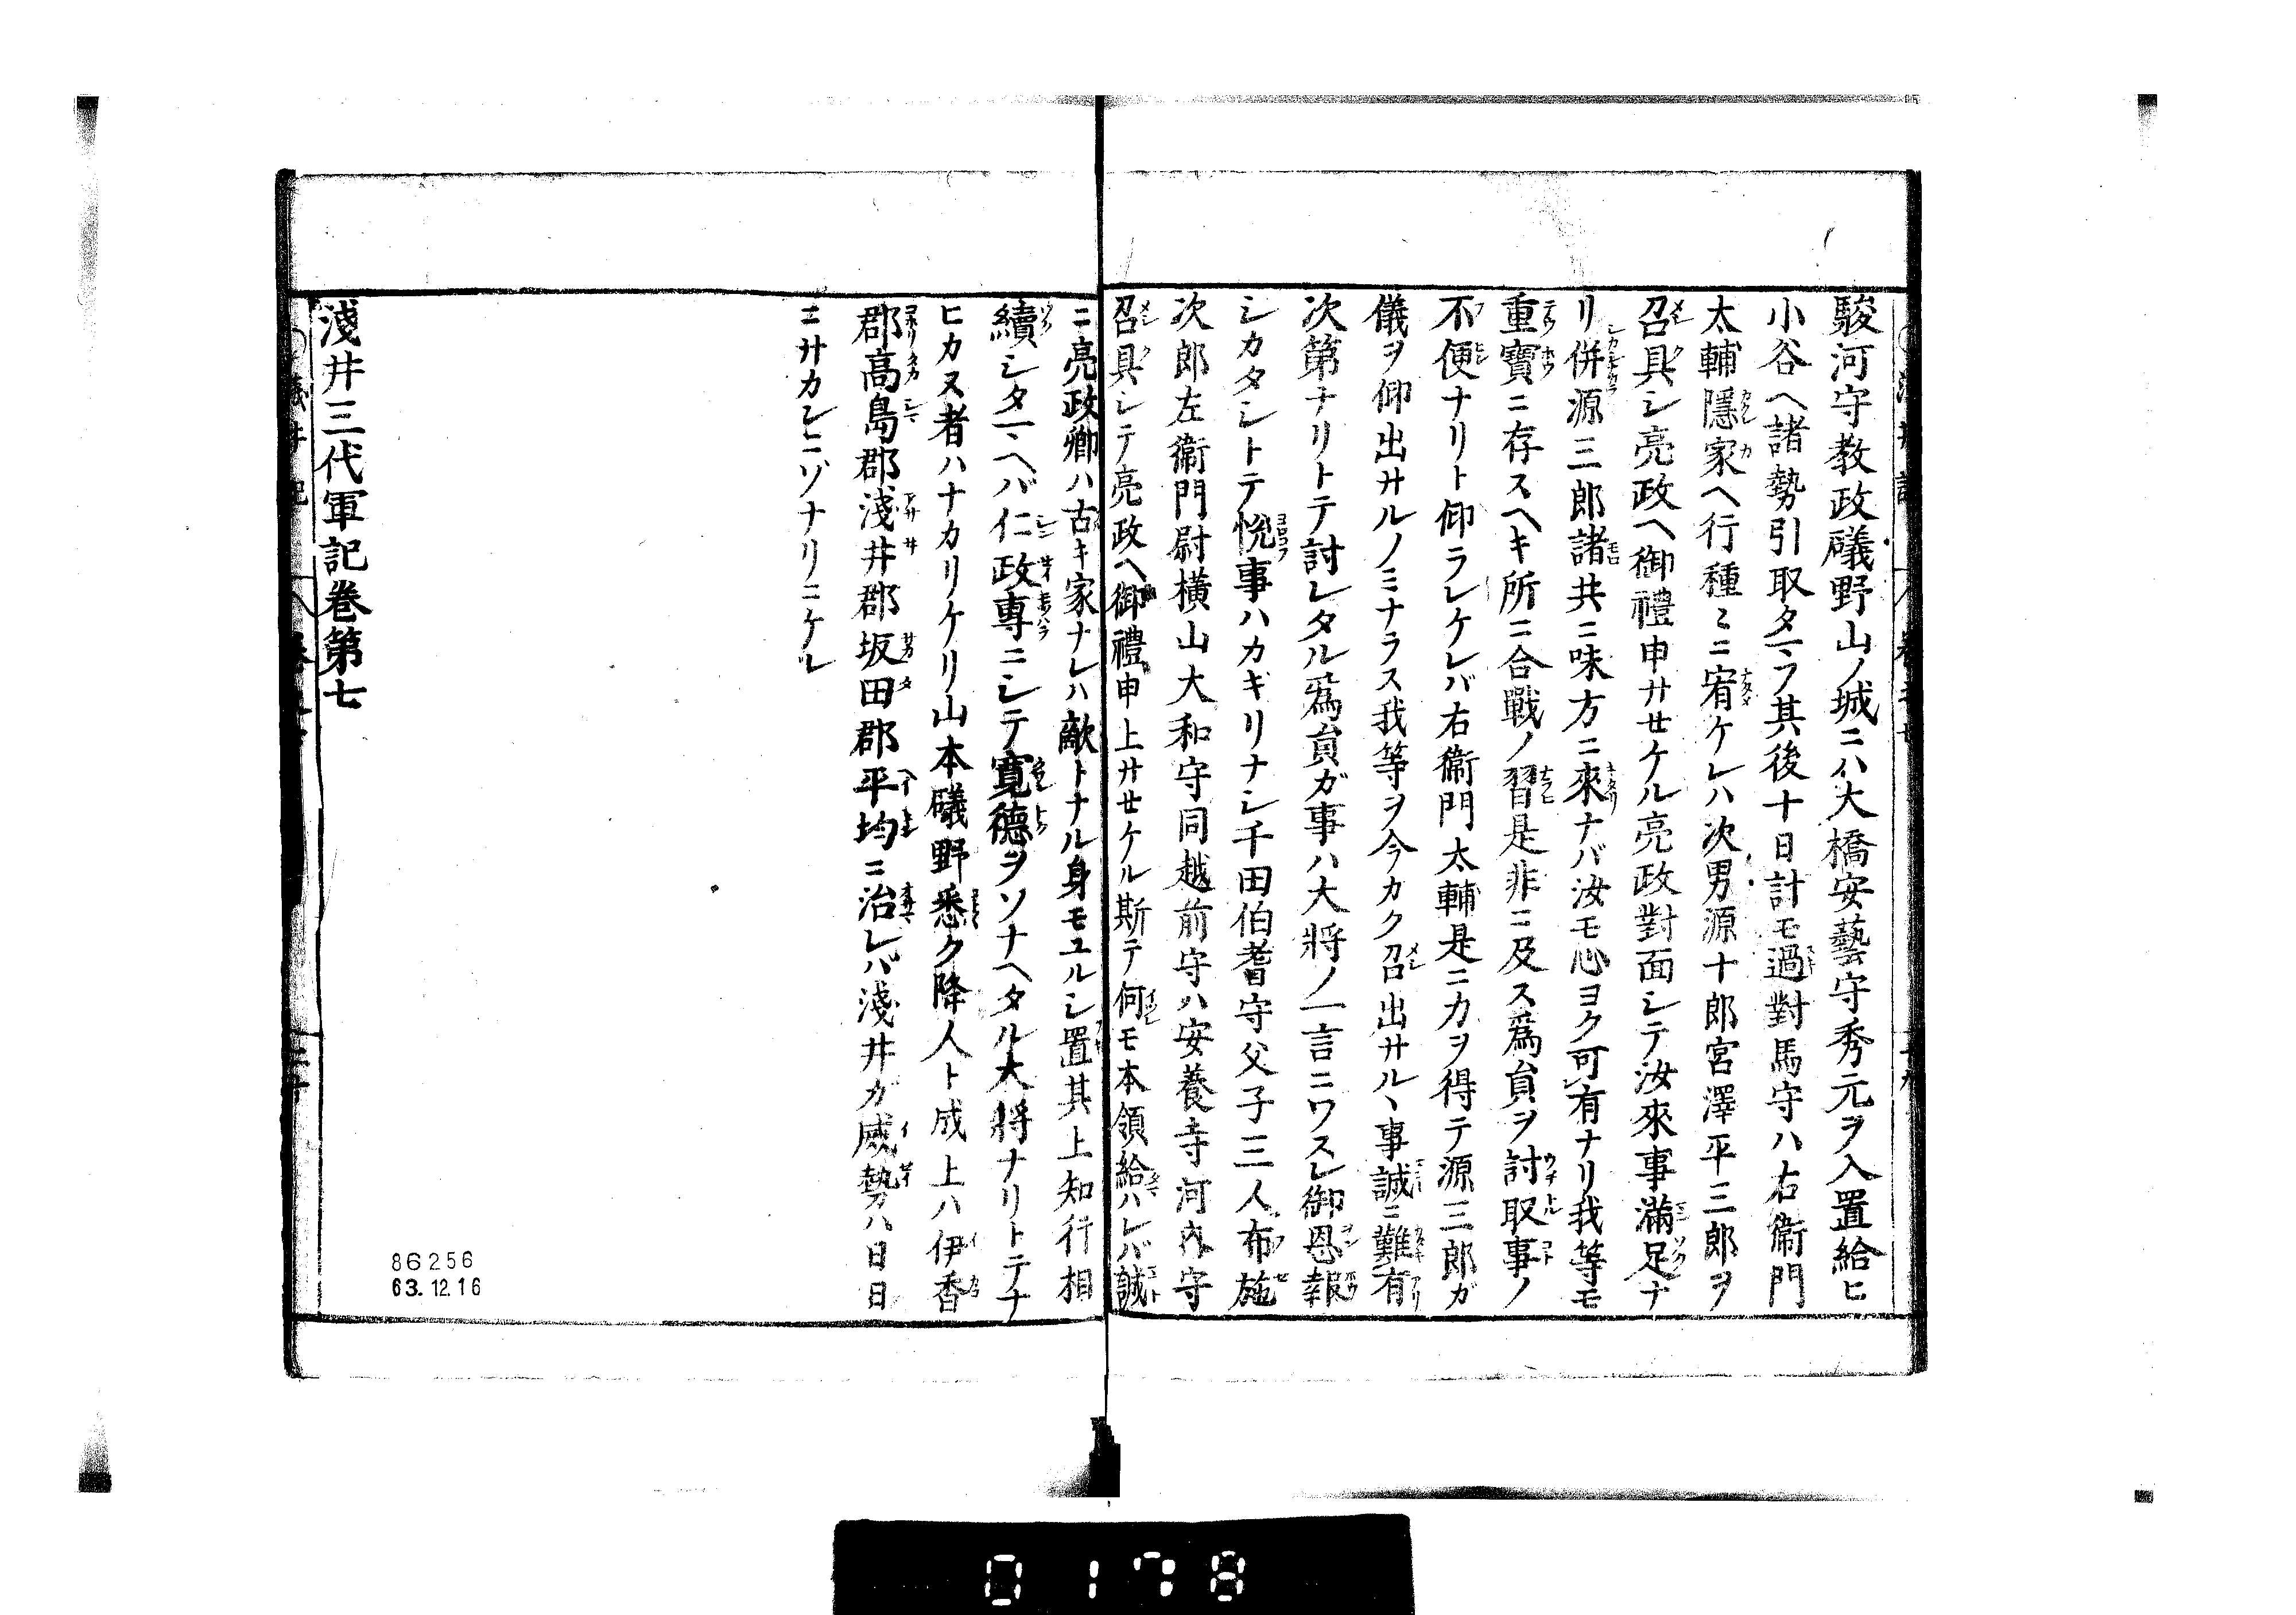 駿河守教政礒野山ノ城ニハ大橋安藝守秀元ヲ入置給ヒ
小谷ヘ諸勢引取タマフ其後十日計モ過對馬守ハ右衞門
太輔隱家ヘ行種〻ニ宥ケレハ次男源十郎宮澤平三郎ヲ
召具シ亮政ヘ御禮申サセケル亮政對面シテ汝來事滿足ナ
リ併源三郎諸共ニ味方ニ來ナバ汝モ心ヨク可有ナリ我等モ
重寶ニ存スヘキ所ニ合戰ノ習是非ニ及ス爲員ヲ討取事ノ
不便ナリト仰ラレケレバ右衞門太輔是ニ力ヲ得テ源三郎ガ
儀ヲ仰出サルノミナラス我等ヲ今カク召出サルヽ事誠ニ難有
次第ナリトテ討レタル爲員ガ事ハ大將ノ一言ニワスレ御恩報
シカタシトテ悅事ハカギリナシ千田伯耆守父子三人布施
次郎左衞門尉横山大和守同越前守ハ安養寺河内守
召具シテ亮政ヘ御禮申上サセケル斯テ何モ本領給ハレバ誠
ニ亮政卿ハ古キ家ナレハ敵トナル身モユルシ置其上知行相
續シタマヘバ仁政專ニシテ寛德ヲソナヘタル大將ナリトテナ
ヒカヌ者ハナカリケリ山本礒野悉ク降人ト成上ハ伊香
郡高島郡淺井郡坂田郡平均ニ治レバ淺井ガ威勢ハ日日
ニサカレニゾナリニケル
淺井三代軍記卷第七
86256
63.12.16
0178